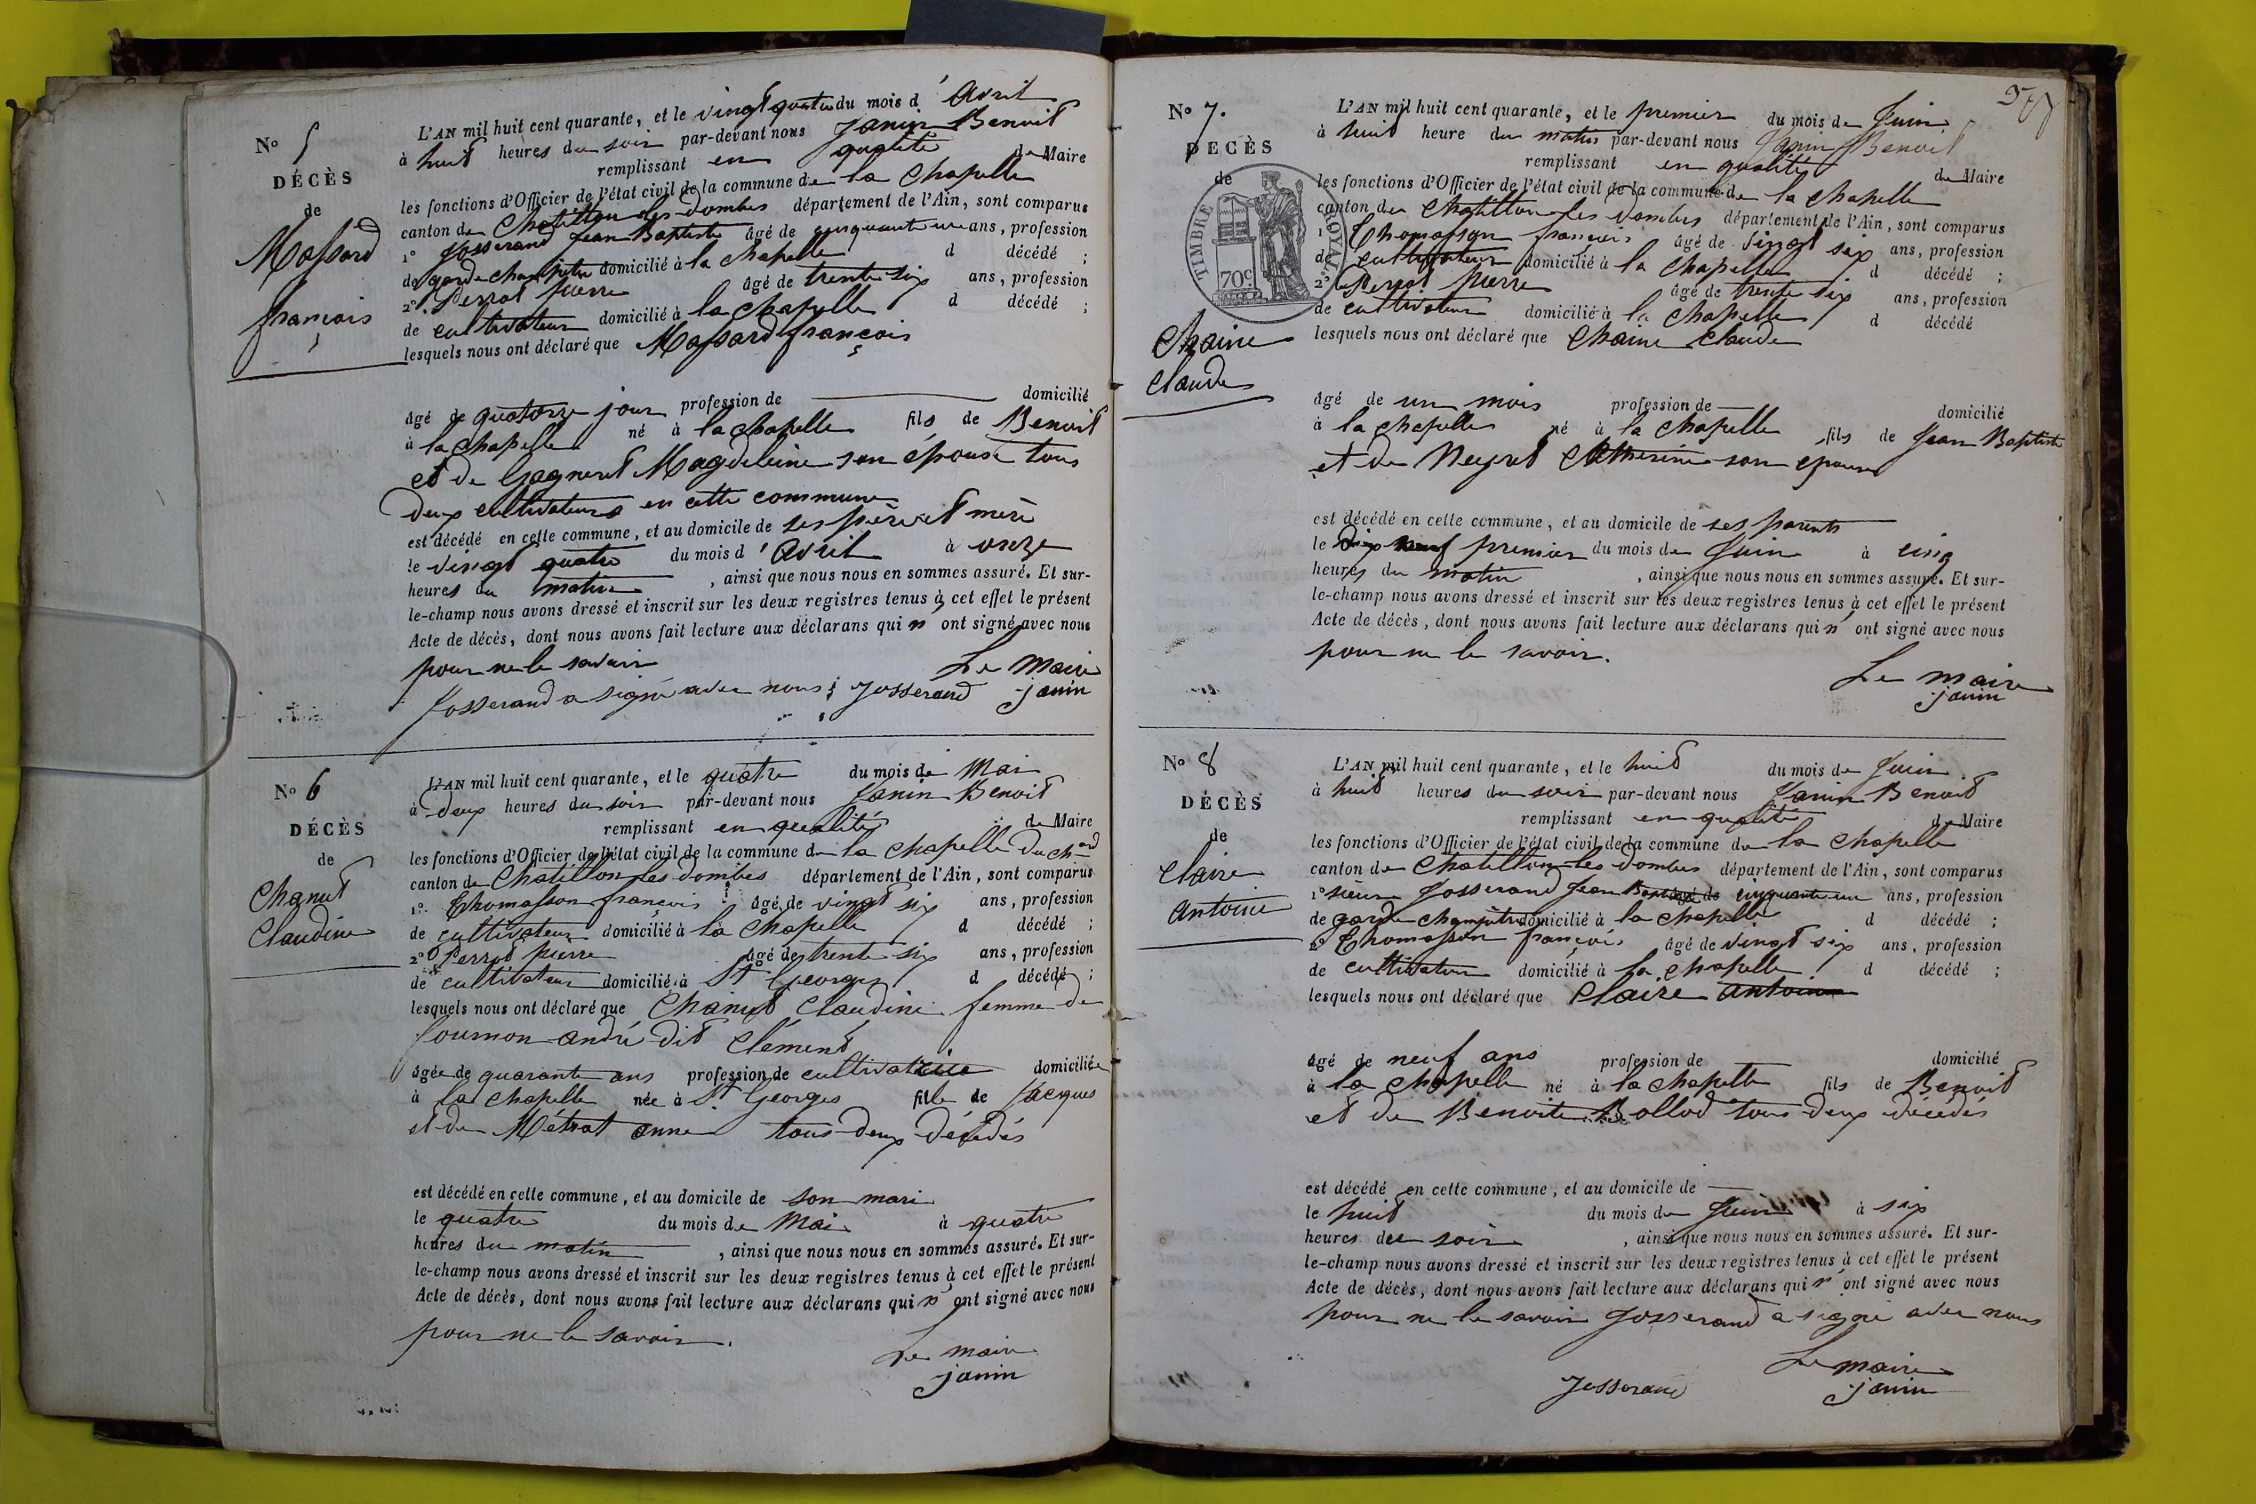 N° 5
DÉCÈS
de
Massard
françois
L'AN mil huit cent quarante, et le vingt quatre du mois d'avril
à huit heures du soir par-devant nous Janin Benoit
remplissant en qualité de Maire
les fonctions d'Officier de l'état civil de la commune de la Chapelle
canton de Chatillon les dombes département de l'Ain, sont comparus
1° Josserand Jean Baptiste âgé de cinquante un ans, profession
de garde champêtre domicilié à la chapelle d décédé ;
2° Perrat pierre âgé de trente six ans, profession
de cultivateur domicilié à la chapelle d décédé ;
lesquels nous ont déclaré que Massard françois
âgé de quatorze jour profession de domicilié
à la chapelle né à la chapelle fils de Benoit
et de Gagneret Magdeleine son épouse tous
deux cultivateurs en cette commune
est décédé en cette commune, et au domicile de ses père et mère
le vingt quatre du mois d'avril à onze
heures du matin , ainsi que nous nous en sommes assuré. Et sur-
le-champ nous avons dressé et inscrit sur les deux registres tenus à cet effet le présent
Acte de décès, dont nous avons fait lecture aux déclarans qui n'ont signé avec nous
pour ne le savoir Le Maire
Josserand a signé avec nous Josserand janin
N° 6
DÉCÈS
de
Chanut
Claudine
L'AN mil huit cent quarante, et le quatre du mois de Mai
à deux heures du soir par-devant nous Janin Benoit
remplissant en qualité de Maire
les fonctions d'Officier de l'état civil de la commune de la chapelle du Chard
canton de Chatillon les dombes département de l'Ain, sont comparus
1° Thomasson françois âgé de vingt six ans, profession
de cultivateur domicilié à la chapelle d décédé ;
2° Perrat pierre âgé de trente six ans, profession
de cultivateur domicilié à St Georges d décédé ;
lesquels nous ont déclaré que Chanut Claudine femme de
fournon andré dit Clément
âgée de quarante ans profession de cultivatrice domiciliée
à la chapelle née à St Georges fille de Jacques
et de Métrat anne tous deux décédés
est décédé en cette commune, et au domicile de son mari
le quatre du mois de Mai à quatre
heures du matin , ainsi que nous nous en sommes assuré. Et sur-
le-champ nous avons dressé et inscrit sur les deux registres tenus à cet effet le présent
Acte de décès, dont nous avons fait lecture aux déclarans qui n'ont signé avec nous
pour ne le savoir.
Le maire
janin
N° 7.
DÉCÈS
de
TIMBRE ROYAL
70c
Chaine
Claude
L'AN mil huit cent quarante, et le premier du mois de Juin
à huit heure du matin par-devant nous Janin Benoit
remplissant en qualité de Maire
les fonctions d'Officier de l'état civil de la commune de la chapelle
canton de Chatillon les dombes département de l'Ain, sont comparus
1° Thomasson françois âgé de vingt six ans, profession
de cultivateur domicilié à la chapelle d décédé ;
2° Perrat pierre âgé de trente six ans, profession
de cultivateur domicilié à la chapelle d décédé
lesquels nous ont déclaré que Chaine Claude
âgé de un mois profession de domicilié
à la chapelle né à la chapelle fils de Jean Baptiste
et de Neyret Catherine son epouse
est décédé en cette commune, et au domicile de ses parents
le premier du mois de Juin à cinq
heures du matin , ainsi que nous nous en sommes assuré. Et sur-
le-champ nous avons dressé et inscrit sur les deux registres tenus à cet effet le présent
Acte de décès, dont nous avons fait lecture aux déclarans qui n'ont signé avec nous
pour ne le savoir.
Le maire
janin
N° 8
DÉCÈS
de
Claire
Antoine
L'AN mil huit cent quarante, et le huit du mois de Juin
à huit heures du soir par-devant nous Janin Benoit
remplissant en qualité de Maire
les fonctions d'Officier de l'état civil de la commune de la chapelle
canton de Chatillon les dombes département de l'Ain, sont comparus
1° sieur Josserand Jean Baptiste âgé de cinquante un ans, profession
de garde champêtre domicilié à la chapelle d décédé ;
2° Thomasson françois âgé de vingt six ans, profession
de cultivateur domicilié à la chapelle d décédé ;
lesquels nous ont déclaré que Claire antoine
âgé de neuf ans profession de domicilié
à la chapelle né à la chapelle fils de Benoit
et de Benoite Bollod tous deux décédés
est décédé en cette commune, et au domicile de
le huit du mois de Juin à six
heures du soir , ainsi que nous nous en sommes assuré. Et sur-
le-champ nous avons dressé et inscrit sur les deux registres tenus à cet effet le présent
Acte de décès, dont nous avons fait lecture aux déclarans qui n'ont signé avec nous
pour ne le savoir Josserand a signé avec nous
Le maire
Josserand janin